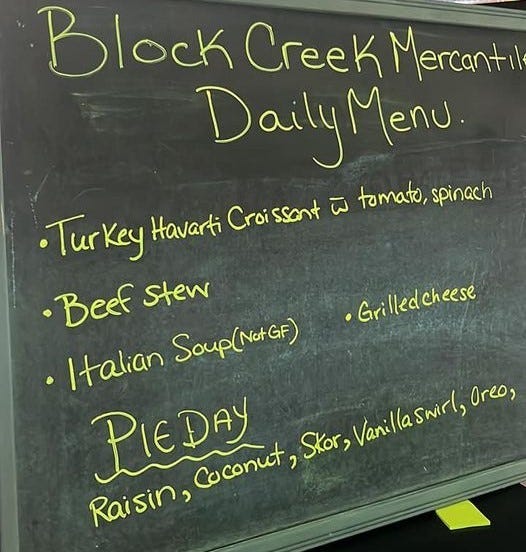 Block Creek Mercantile
Daily Menu.
• Turkey Havarti Croissant w̅ tomato, spinach
• Beef stew
• Italian Soup (Not GF)
• Grilled cheese
PIE DAY
Raisin, Coconut, Skor, Vanilla swirl, Oreo,